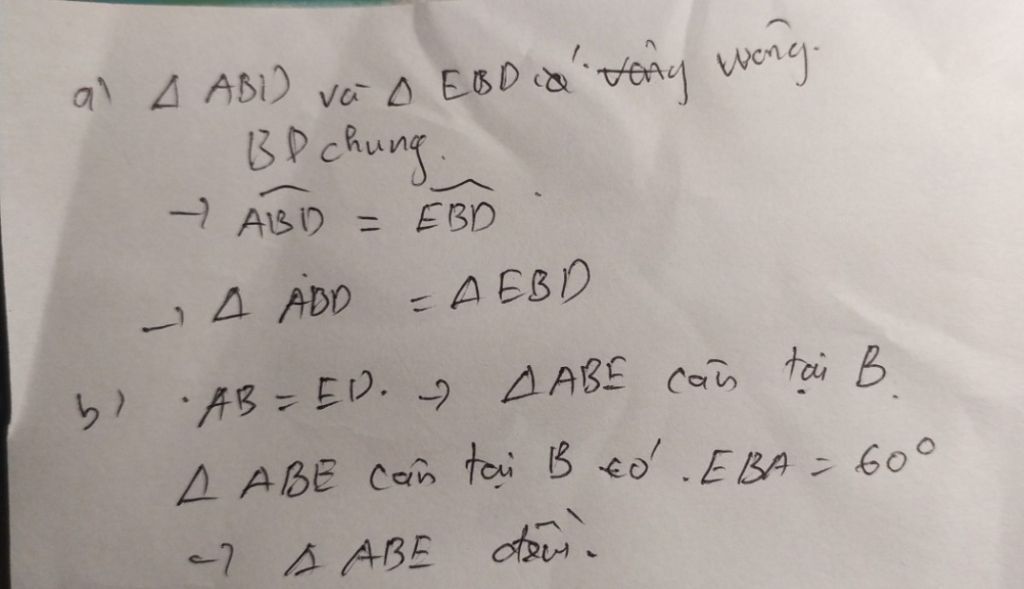 a) Δ ABD và Δ EBD có vuông vuông.
BD chung.
→ ABD = EBD
→ Δ ABD = Δ EBD
b) . AB = ED. → Δ ABE cân tại B.
Δ ABE cân tại B có . EBA = 60°
→ Δ ABE đều.